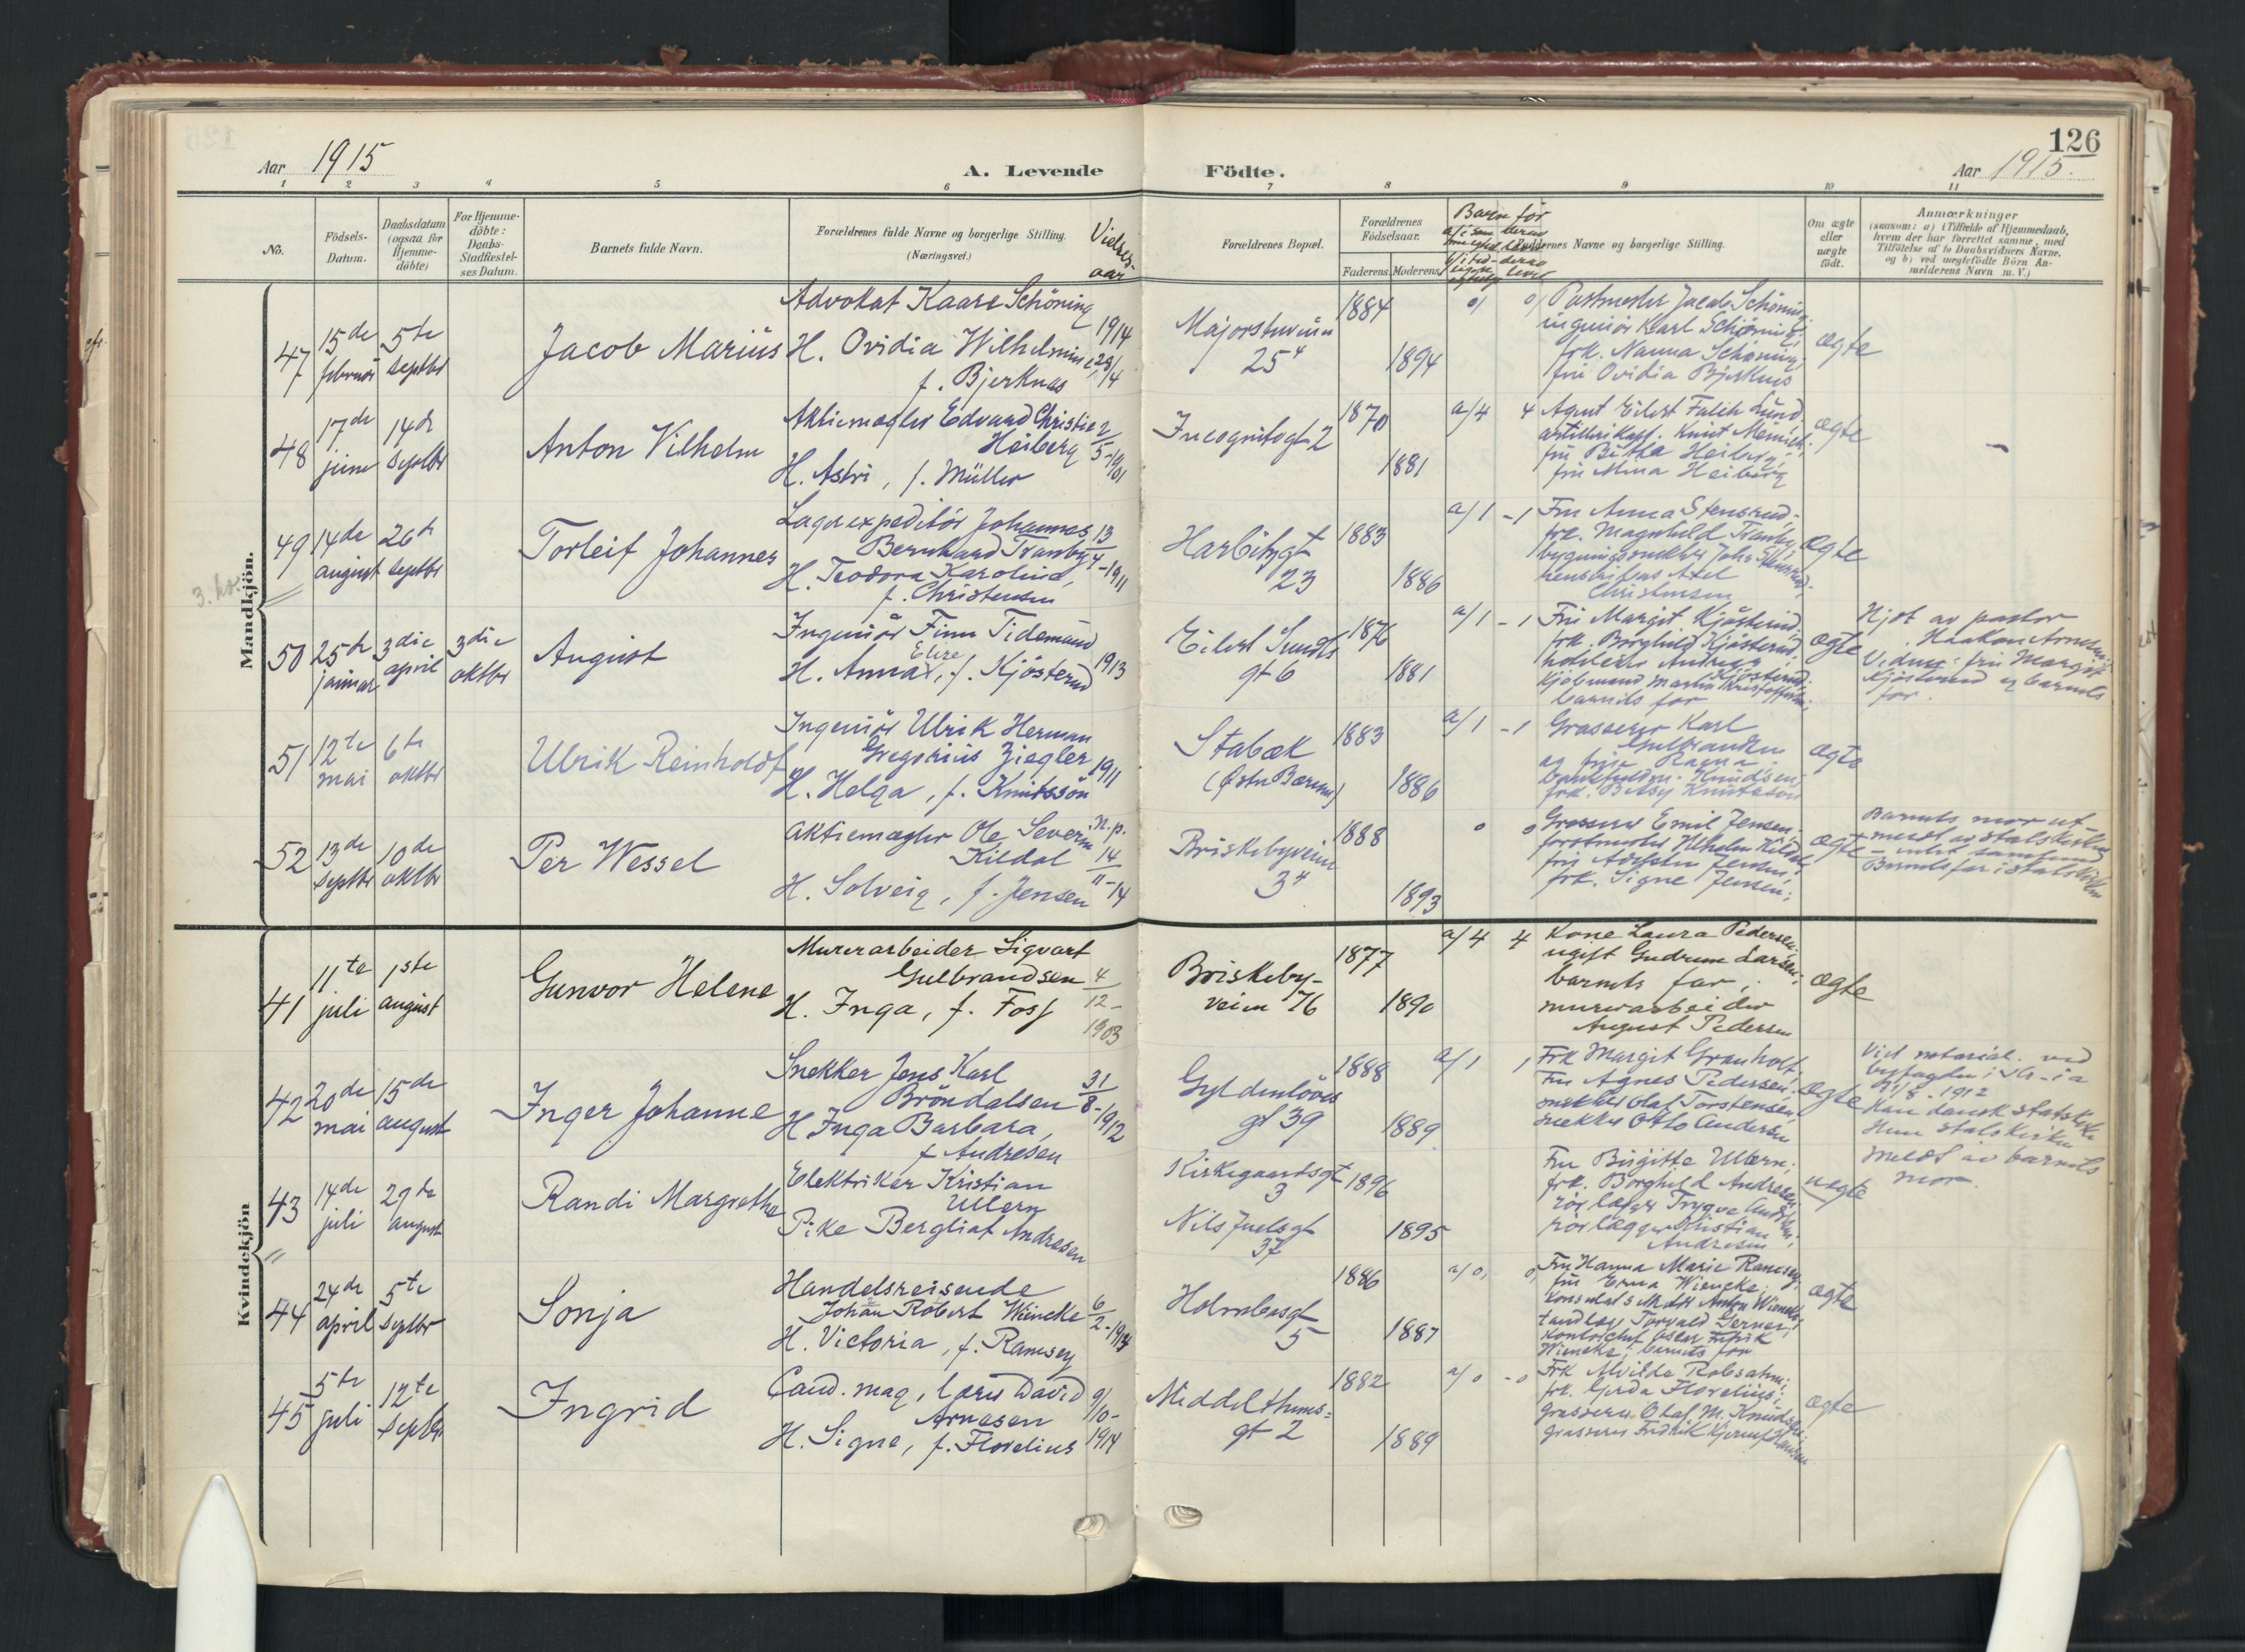 126
Aar 1915
A. Levende Födte.
Aar 1915.
1 2 3 4 5 6 7 8 9 10 11
No.
Födsels-Datum.
Daabsdatum (ogsaa for Hjemme-döbte)
For Hjemme-döbte: Daabs-Stadfæstel-ses Datum.
Barnets fulde Navn.
Forældrenes fulde Navne og borgerlige Stilling. (Næringsvei.)
Vielses-aar
Forældrenes Bopæl.
Forældrenes Födselsaar.
Faderens. Moderens.
Barn før
Faddernes Navne og borgerlige Stilling.
Om ægte eller uægte født.
Anmærkninger
(saasom: a) i Tilfælde af Hjemmedaab, hvem der har forrettet samme, med Tilføielse af to Daabsvidners Navne. og b) ved uægtefødte Börn An-melderens Navn m. V.)
Mandkjön.
47 15de februar 5te septbr
Jacob Marius
Advokat Kaare Schöning
H. Ovidia Wilhelmine
f. Bjerknas
1914
Majorstuveien
25⁴
1884
1894
Postmester Jacob Schöning;
ingeniör Karl Schöning;
frk. Nanna Schöning;
fru Ovidia Bjerknes
ægte
48 17de juni 14de septbr
Anton Vilhelm
Aktiemægler Edvard Christie
Heiberg
H. Astri, f. Müller
2/5-1901
Incognitogt 2
1870
1881
a/4 4
Agent Eilert Falch Lund
artillerikapt. Knut
fru Heiberg
fru Heiberg
ægte
49 14de august 26de septbr
Torleif Johannes
Lagerexpeditör Johannes
Bernhard Tranby
H. Teodora Karoline,
f. Christensen
13/4-1911
Harbitzgt
23
1883
1886
a/1 -1
Fru Anna Stensrud-
frk. Magnhild Tranby
Axel
Christensen
ægte
50 25de januar 3die april 3die oktbr
August
Ingeniör Finn Tidemand
Elise
H. Anna, f. Kjösterud
1913
Eilert Sundts
gt 6
1876
1881
a/1 - 1
Fru Margit Kjösterud,
frk. Borghild Kjösterud
Andreas
Kjösterud;
Kjöbmand Martin Kristoffersen;
barnets far
ægte
Hjdt av pastor
Haakon
fru Margit
Kjösterud og barnets
far.
51 12te mai 6te oktbr
Ulrik Reinholdt
Ingeniör Ulrik Herman
Gregorius Ziegler
H. Helga, f. Knutssön
1911
Stabæk
(Østre Bærum)
1883
1886
a/1 -1
Grosserer Karl
Gulbrandsen
og frue Ragna.
Knudsen;
frk. Betsy Knutssön
ægte
52 13de septbr 10de oktbr
Per Wessel
Aktiemægler Ole Severin
Kildal
H. Solveig, f. Jensen
n.p.
14/11-14
Briskebyveien
3⁴
1888
1893
0 0
Grosserer Emil Jensen;
forstmester Vilhelm Kildal;
fru Jensen;
frk. Signe Jensen;
ægte
Barnets mor ut-
meldt av statskirken
- intet samfund
Barnets far i statskirken
Kvindekjön
41 11te juli 1ste august
Gunvor Helene
Murerarbeider Sigvart
Gulbrandsen
H. Inga, f. Foss
4/12-1903
Briskeby-
veien 76
1877
1890
a/4 4
Kone Laura Pedersen;
ugift Gudrun Larsen;
barnets far;
murerarbeider
August Pedersen
ægte
42 20de mai 15de august
Inger Johanne
Snekker Jens Karl
Bröndalsen
H. Inga Barbara,
f. Andresen
31/8-1912
Gyldenlöves
gt 39
1888
1889
a/1 1
Frk Margit Granholt;
Fru Agnes Pedersen;
snekker Olaf Torstensen;
snekker Otto Andersen
ægte
Viet notarial. ved
byfogden i Kr-ia
31/8-1912
Han dansk statskirke
Hun statskirken
43 14de juli 29de august
Randi Margrethe
Elektriker Kristian
Ullern
Pike Bergliot Andresen
Kirkegaardsgt
3
Nils Juelsgt
37
1896
1895
Fru Birgitte Ullern;
frk. Borghild Andresen
rörlægger Trygve Andresen;
rörlægger Kristian
Andresen
uægte
Meldt av barnets
mor.
44 24de april 5te septbr
Sonja
Handelsreisende
Johan Robert Wiencke
H. Victoria, f. Ramsey
6/2-1914
Holmboesgt
5
1886
1887
a/0, 0,
Fru Hanna Marie Ramsey;
fru Erna Wiencke;
Anton Wiencke;
tandlæge Torvald Gerner;
Wiencke; barnets far
ægte
45 5te juli 12te septbr
Ingrid
Cand. mag, lærer David
Arnesen
H. Signe, f. Florelius
9/10-1914
Middelthuns=
gt 2
1882
1889
a/0 - 0
Frk Alvilda Robsahm;
frk. Gerda Florelius;
grosserer Olaf M. Knudsen;
grosserer Fredrik
ægte